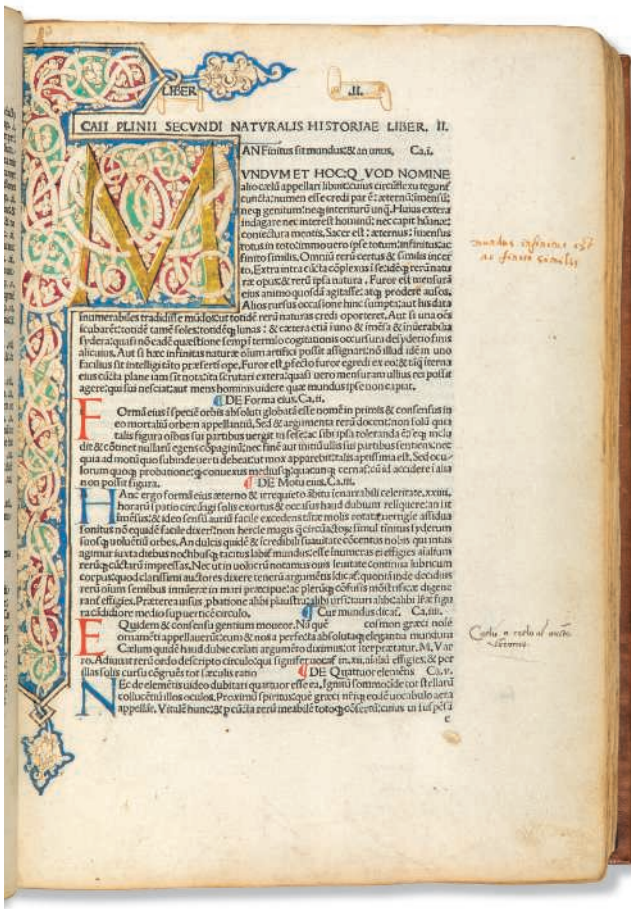 LIBER .II.
CAII PLINII SECVNDI NATVRALIS HISTORIAE LIBER. II.
AN Finitus sit mundus:& an unus. Ca.i.
MVNDVM ET HOC:Q VOD NOMINE
alio cælū appellari libuit:cuius circūflexu tegunt̃
cuncta:numen esse credi par ē:æternū:imensū:
neq; genitum:neq; interiturū unq̄. Huius extera
indagare nec interest hominū:nec capit hūanę:
coniectura mentis. Sacer est:æternus:imensus
totus in toto:immo uero ipse totum:infinitus:ac
finito similis. Omniū rerū certus & similis incer
to. Extra intra cūcta cōplexus i se:idēq; rerū natu
ræ opus:& rerū ipsa natura. Furor est mensurā
eius animo quosdā agitasse:atq; prodere ausos.
Alios rursus occasione hinc sumpta:aut his data
inumerabiles tradidisse mūdos:ut totidē rerū naturas credi oporteret. Aut si una oēs
icubaret:totidē tamē soles:totidēq; lunas:& cætera etiā i uno & imēsa & inūerabilia
sydera:quasi nō eadē quæstione semp i termio cogitationis occursura desyderio finis
alicuius. Aut si hæc infinitas naturæ oīum artifici possit assignari:nō illud idē in uno
facilius sit intelligi tāto præsertī ope. Furor est pfecto furor egredi ex eo:& tāq̄ iterna
eius cūcta plane iam sīt nota:ita scrutari extera:quasi uero mensuram ullius rei possit
agere:qui sui nesciat:aut mens hominis uidere quæ mundus ipse non capiat.
DE Forma eius. Ca.ii.
FOrmā eius i speciē orbis absoluti globatā esse nomē in primis & consensus in
eo mortaliū orbem appellantiū. Sed & argumenta rerū docent:non solū quia
talis figura oībus sui partibus uergit in sese:ac sibi ipsa toleranda ē:seq; inclu
dit & cōtinet nullarū egens cōpaginū:nec finē aut initiū ullis sui partibus sentiens:nec
quia ad motū quo subinde uerti debeat:ut mox apparebit:talis aptissima est. Sed ocu-
lorum quoq; probatione:q̇ conuexus mediusq; quacunq; cernat̃:cū id accidere i alia
non possit figura. DE Motu eius. Ca.iii.
HAnc ergo formā eius æterno & irrequieto ābitu ienarrabili celeritate.xxiiii.
horarū spatio circūagi solis exortus & occasus haud dubium reliquere:an sit
imēsus:& ideo sensū auriū facile excedens tātæ molis rotatæ uertigīe assidua
sonitus nō equidē facile dixerī:non hercle magis q̄ circūactoꝗ; simul tinnitus syderum
suosq; uoluentiū orbes. An dulcis quidē & icredibili suauitate cōcentus nobis qui intus
agimur iuxta diebus noctibusq; tacitus labit̃ mundus:esse īnumeras ei effigies aīalium
rerūq; cūctarū impressas. Nec ut in uolucrū notamus ouis leuitate continua lubricum
corpus:quod clarissimi auctores dixere tenerū argumētis īdicat̃:quoniā inde deciduis
rerū oīum semībus innūeræ in mari præcipue:ac plerūq; cōfusis mōstrificæ digene
rant̃ effigies. Præterea uisus pbatione alibi plaustri:alibi ursi:tauri alibi:alibi lr̄æ figu
ra cādidiore medio sup uerticē circulo. Cur mundus dicat̃. Ca.iiii.
EQuidem & consensu gentium moueor. Nā quē cosmon græci noīe
ornamēti appellauerūt:eum & nos a perfecta absolutaq; elegantia mundum
Cælum quidē haud dubie cælati argumēto diximus:ut īterpræatur.M.Var
ro. Adiuuat rerū ordo descripto circulo:qui signifer uocat̃ in.xii.aīaliū effigies:& per
illas solis cursu cōgruēs tot sæculis ratio DE Quattuor elemētis Ca.v.
NEc de elemētis uideo dubitari quattuor esse ea. Igniū sūmo:ide tot stellarū
collucētiū illos oculos. Proximū spiritus:quē græci nr̄iq; eodē uocabulo aera
appellāt. Vitalē hunc:& p cūcta rerū meabilē totoq; cōsertū:cuius ui suspēsā
c
mundus infinitus est
ac finito similis